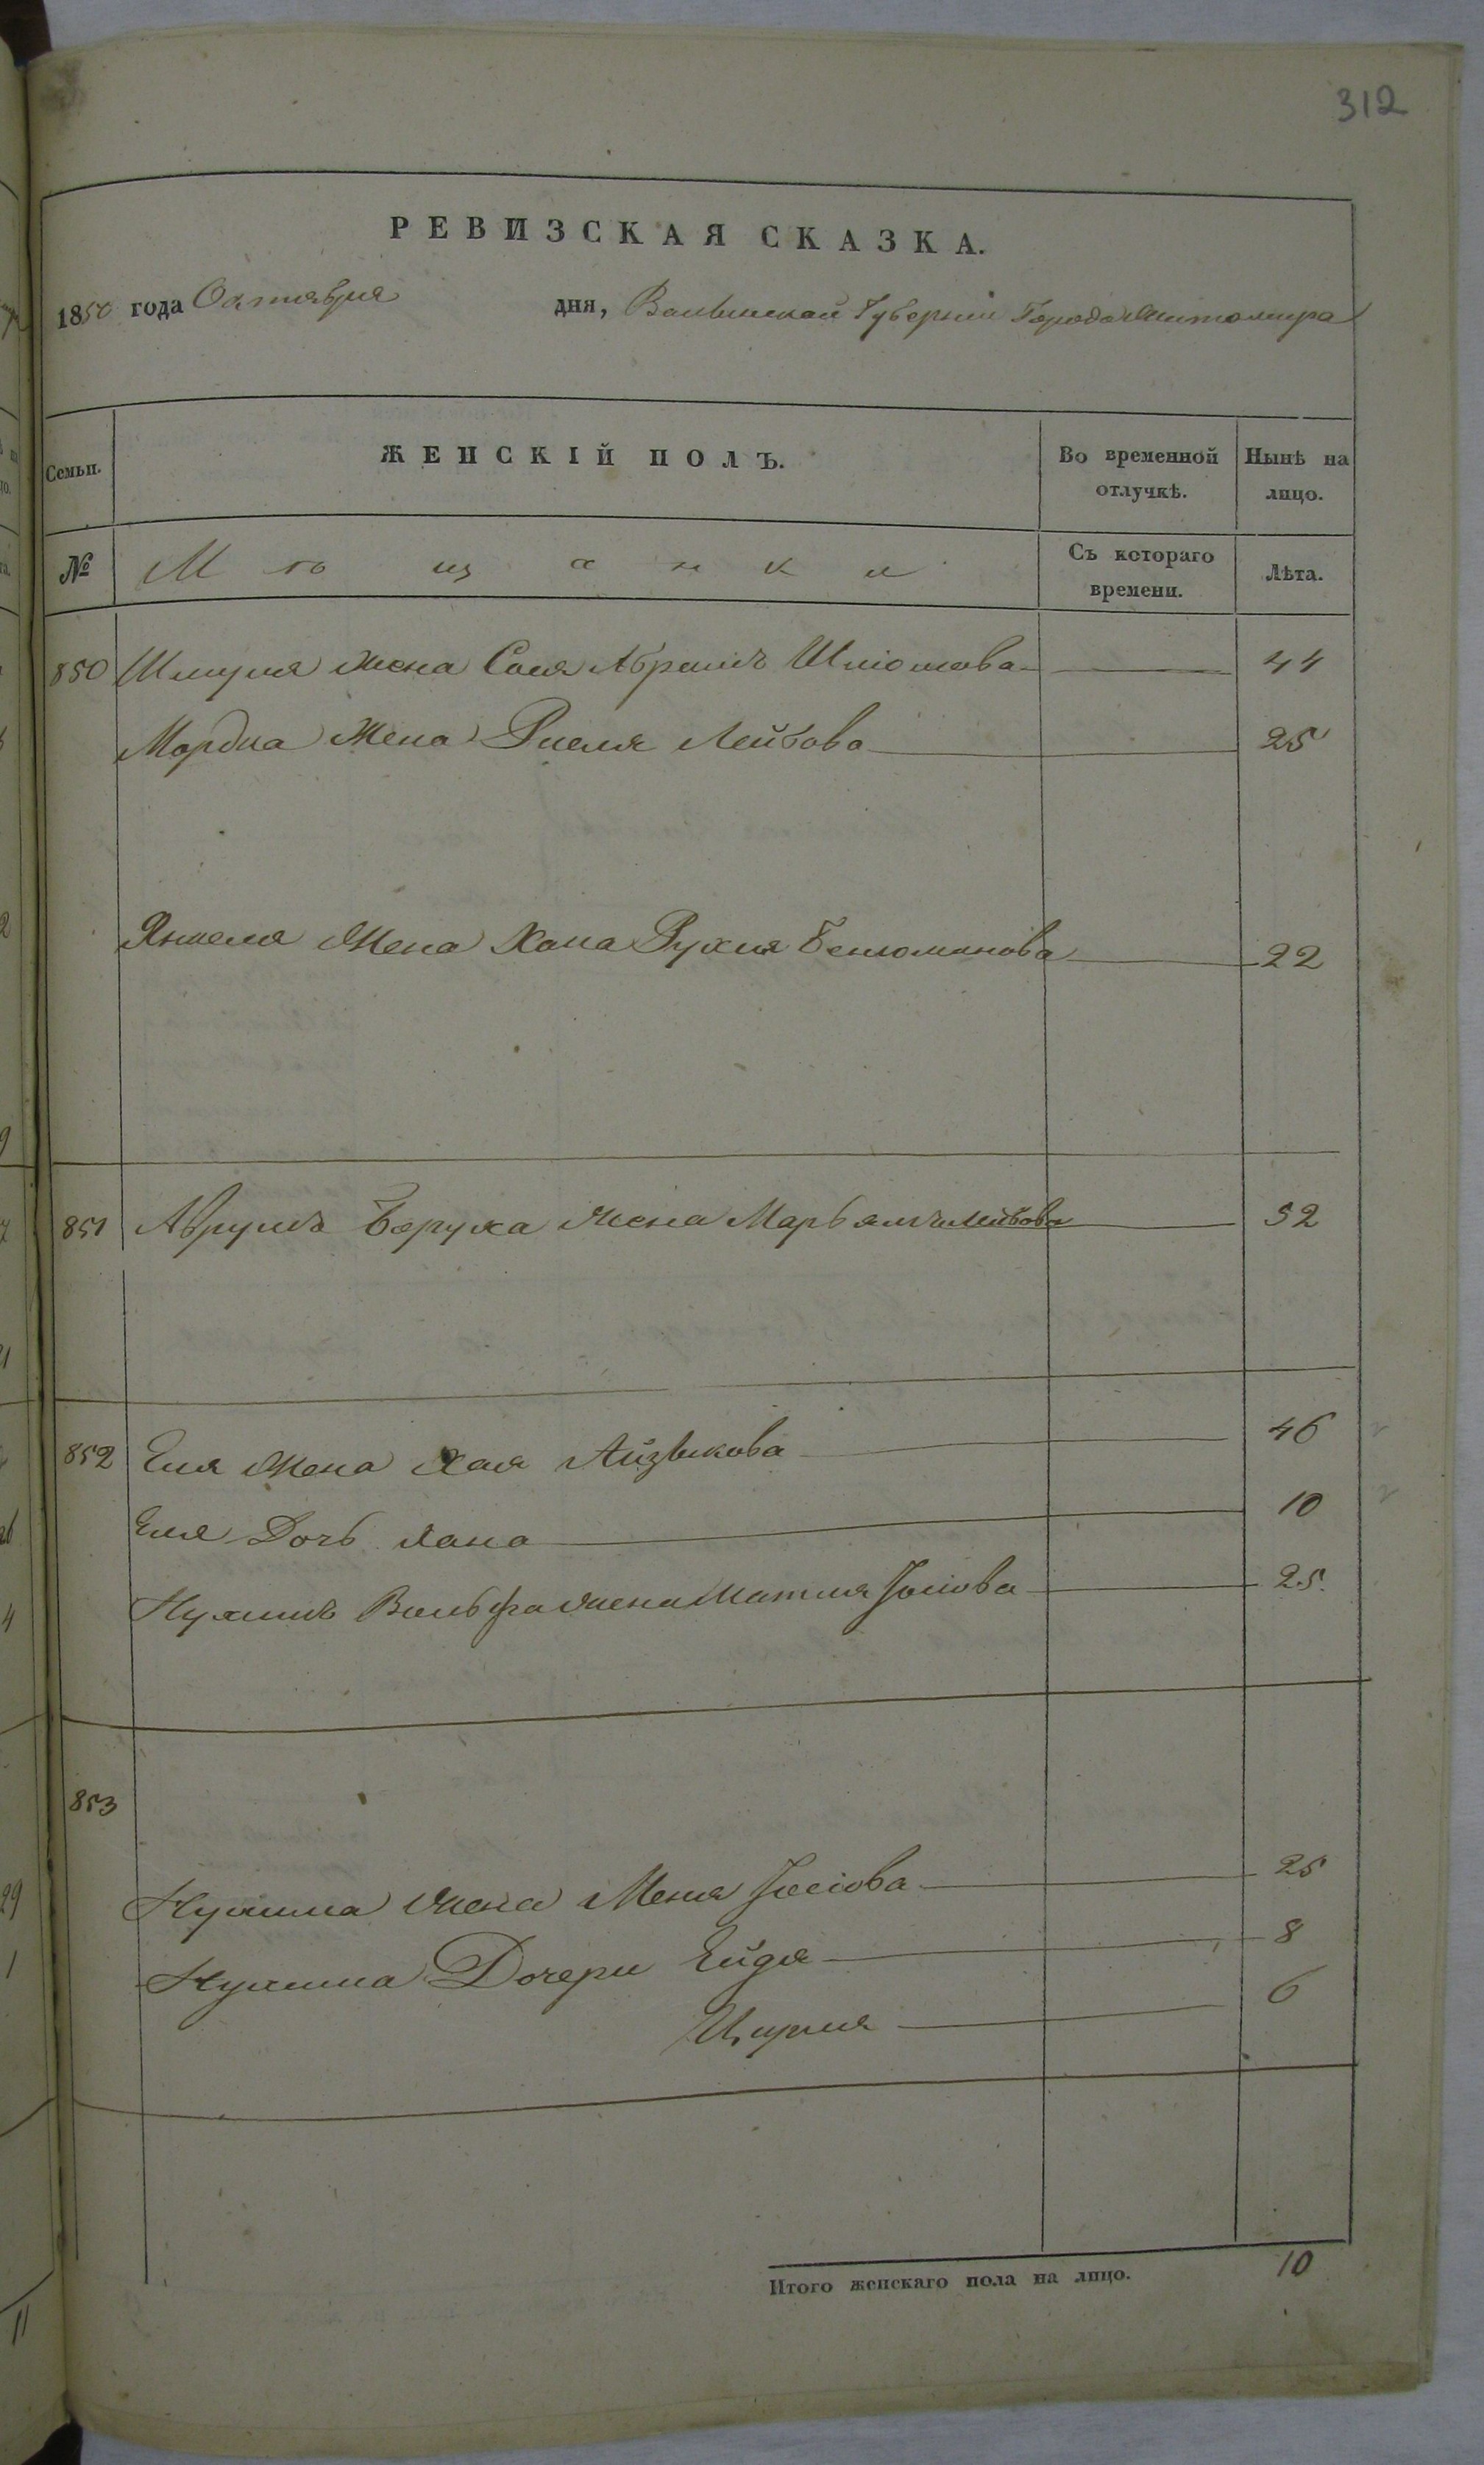 312
РЕВИЗСКАЯ СКАЗКА.
1850 года Октября дня, Волынской Губерніи Города Житомира
Семьи. ЖЕНСКІЙ ПОЛЪ. Во временной отлучкѣ. Нынѣ на лицо.
№ Мѣщанки Съ котораго времени. Лѣта.
850 Шмуля жена Сося Абрамъ Шліомова 44
Мордка Жена Рисля Лейбова 25
Янкеля Жена Хана Рухля Беніоминова 22
851 Аврумъ Боруха жена Марьямъ Лейбова 52
852 Еля Жена Хая Айзыкова 46
Еля Дочь Хана 10
Нухимъ Вольфа жена Матля Іосіова 25
853
Нухима жена Меня Іосіова 25
Нухима Дочери Ейдя 8
Цирля 6
Итого женскаго пола на лицо. 10